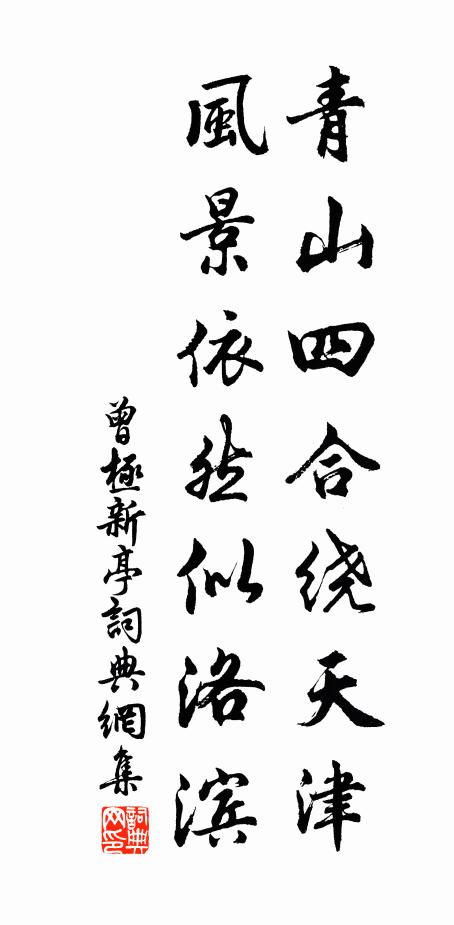 青山四合绕天津
風景依然似洛滨
曾極新亭詞典網集
詞典网印